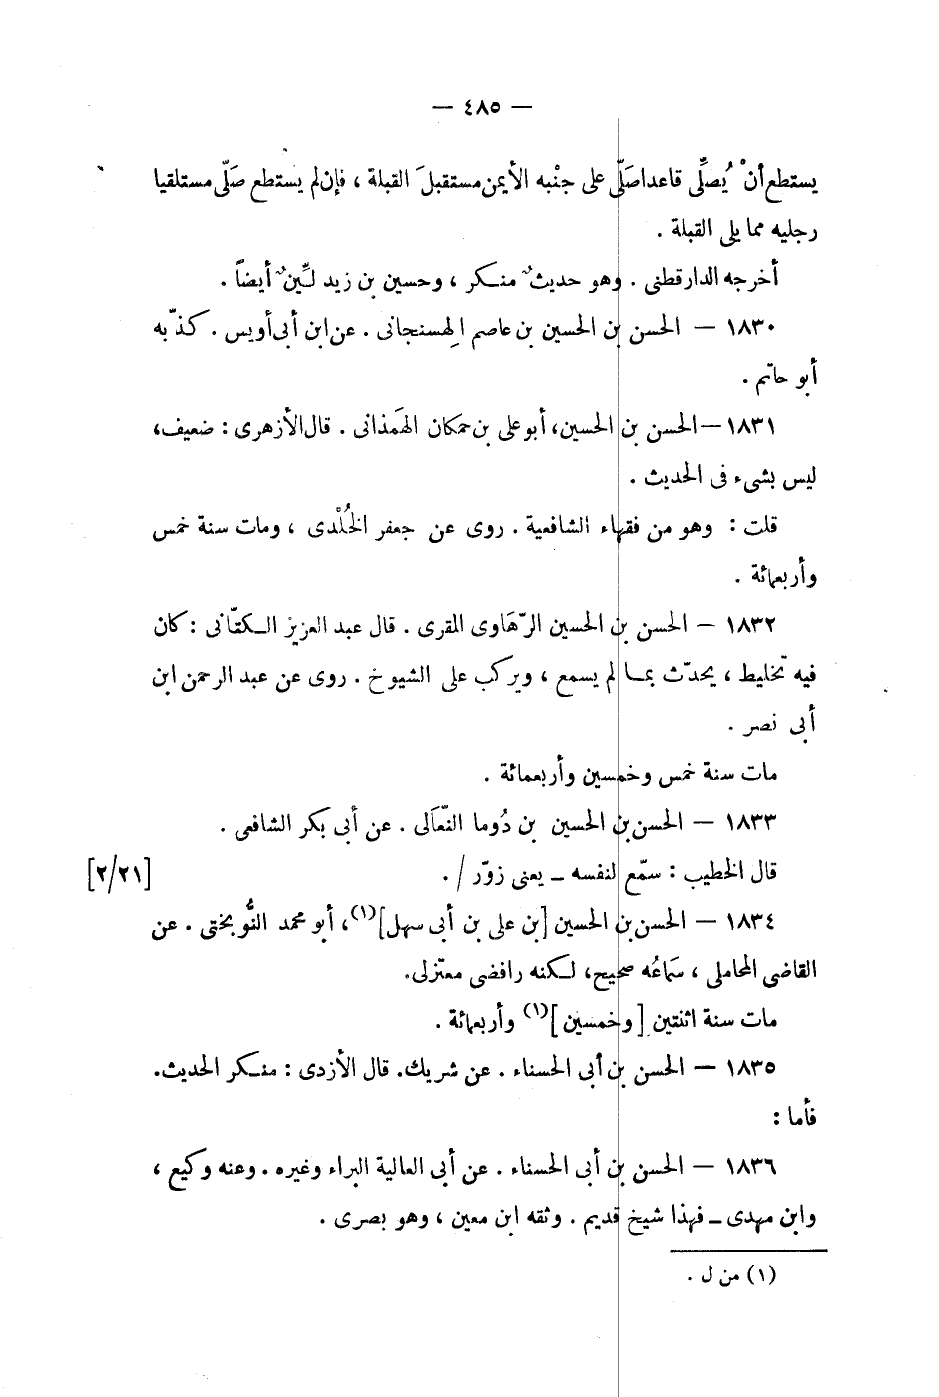 — ٤٨٥ —
يستطع أنْ يُصلِّى قاعدا صَلّى على جنْبه الأيمن مستقبلَ القبلة ، فإن لم يستطع صَلّى مستلقيا
رجليه مما يلى القبلة .
أخرجه الدارقطنى . وهو حديثٌ منكر ، وحسين بن زيد ليِّنٌ أيضاً .
١٨٣٠ — الحسن بن الحسين بن عاصم الهِسنجانى . عن ابن أبى أويس . كذّبه
أبو حاتم .
١٨٣١ — الحسن بن الحسين، أبو على بن حمكان الهَمذانى . قال الأزهرى : ضعيف،
ليس بشىء فى الحديث .
قلت : وهو من فقهاء الشافعية . روى عن جعفر الخُلْدى ، ومات سنة خمس
وأربعمائة .
١٨٣٢ — الحسن بن الحسين الرّهَاوى المقرى . قال عبد العزيز الكتّانى : كان
فيه تخليط ، يحدّث بما لم يسمع ، ويركب على الشيوخ . روى عن عبد الرحمن ابن
أبى نصر .
مات سنة خمس وخمسين وأربعمائة .
١٨٣٣ — الحسن بن الحسين بن دُوما النّعَالى . عن أبى بكر الشافعى .
قال الخطيب : سمّع لنفسه ــ يعنى زوّر / . [٢/٢١]
١٨٣٤ — الحسن بن الحسين [بن على بن أبى سهل](١)، أبو محمد النُّوبختى . عن
القاضى المحاملى ، سَمَاعُه صحيح، لكنه رافضى معتزلى.
مات سنة اثنتين [وخمسين](١) وأربعمائة .
١٨٣٥ — الحسن بن أبى الحسناء . عن شريك. قال الأزدى : منكر الحديث.
فأما :
١٨٣٦ — الحسن بن أبى الحسناء . عن أبى العالية البراء وغيره . وعنه وكيع ،
وابن مهدى ــ فهذا شيخ قديم . وثقه ابن معين ، وهو بصرى .
(١) من ل .